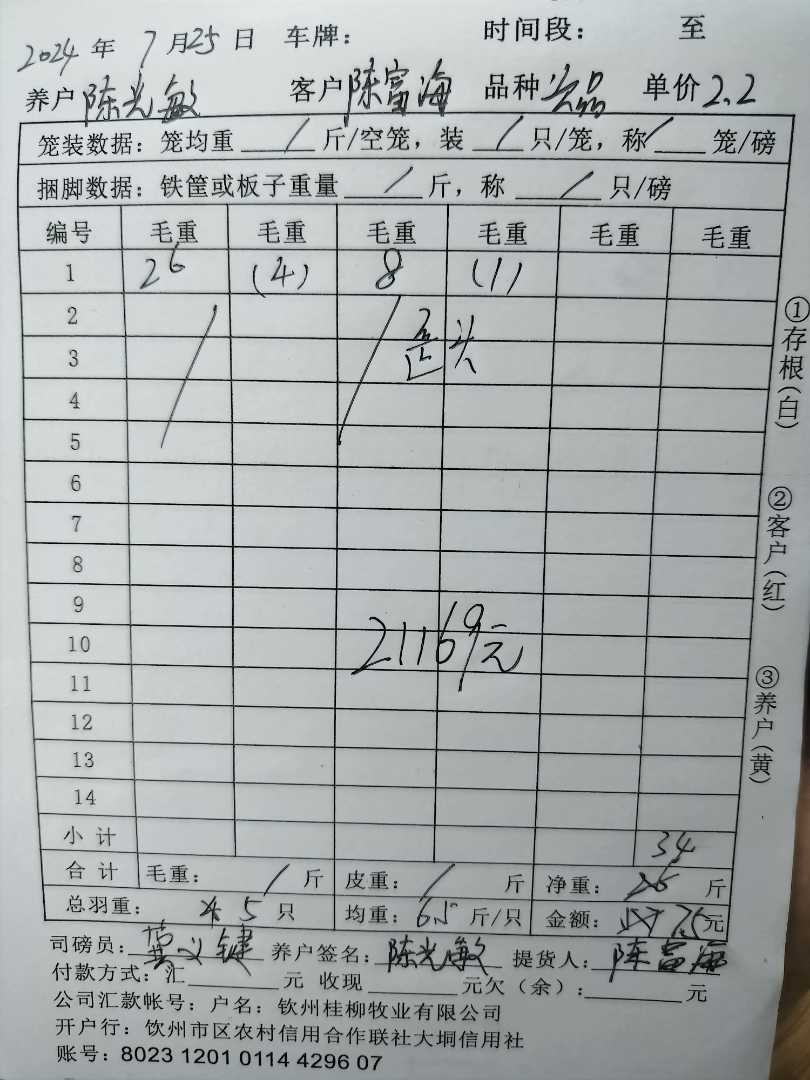 2024年7月25日 车牌: 时间段: 至
养户 陈光敏 客户 陈富海 品种 次品 单价 2.2
笼装数据: 笼均重 / 斤/空笼, 装 / 只/笼, 称 / 笼/磅
捆脚数据: 铁筐或板子重量 / 斤, 称 / 只/磅
编号 毛重 毛重 毛重 毛重 毛重 毛重
1 26 (4) 8 (1)
2
3 歪头
4
5
6
7
8
9
10 21169元
11
12
13
14
小计 34
合计 毛重: / 斤 皮重: / 斤 净重: 26 斤
总羽重: 5 只 均重: 6.5 斤/只 金额: 75元
司磅员: 键 养户签名: 陈光敏 提货人: 陈富海
付款方式: 汇 元 收现 元欠(余): 元
公司汇款帐号: 户名: 钦州桂柳牧业有限公司
开户行: 饮州市区农村信用合作联社大垌信用社
账号: 8023 1201 0114 4296 07
①存根(白)
②客户(红)
③养户(黄)